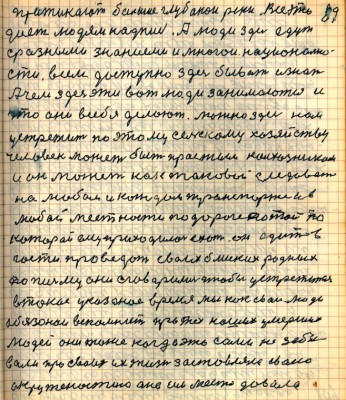 протикают большие глубокой реки. Все это 89
дает людям надпи. А люди зде едут
с разными знаниями и многой национално-
сти, всем доступно здес бывать и знат
А чем здес эти вот люди занимаются и
что они в себя делоют. можно здес нам
устретит по этому селскому хозяйству
человек может быт простым колхозником
и он может как таковой следоват
на любом и каждом транспорте и в
любой местности по дороге по той по
которой ему приходилос ехат. он едит в
гости проведат своех близких родных
по писму они сговорилис чтобы устретится
в такое указоное время мы как сваи люди
обязоны вспомнит про тех наших умерших
людей они тоже когда это сами не забы
вали про своих их жизн заставляла свою
окруженостию она им место довала